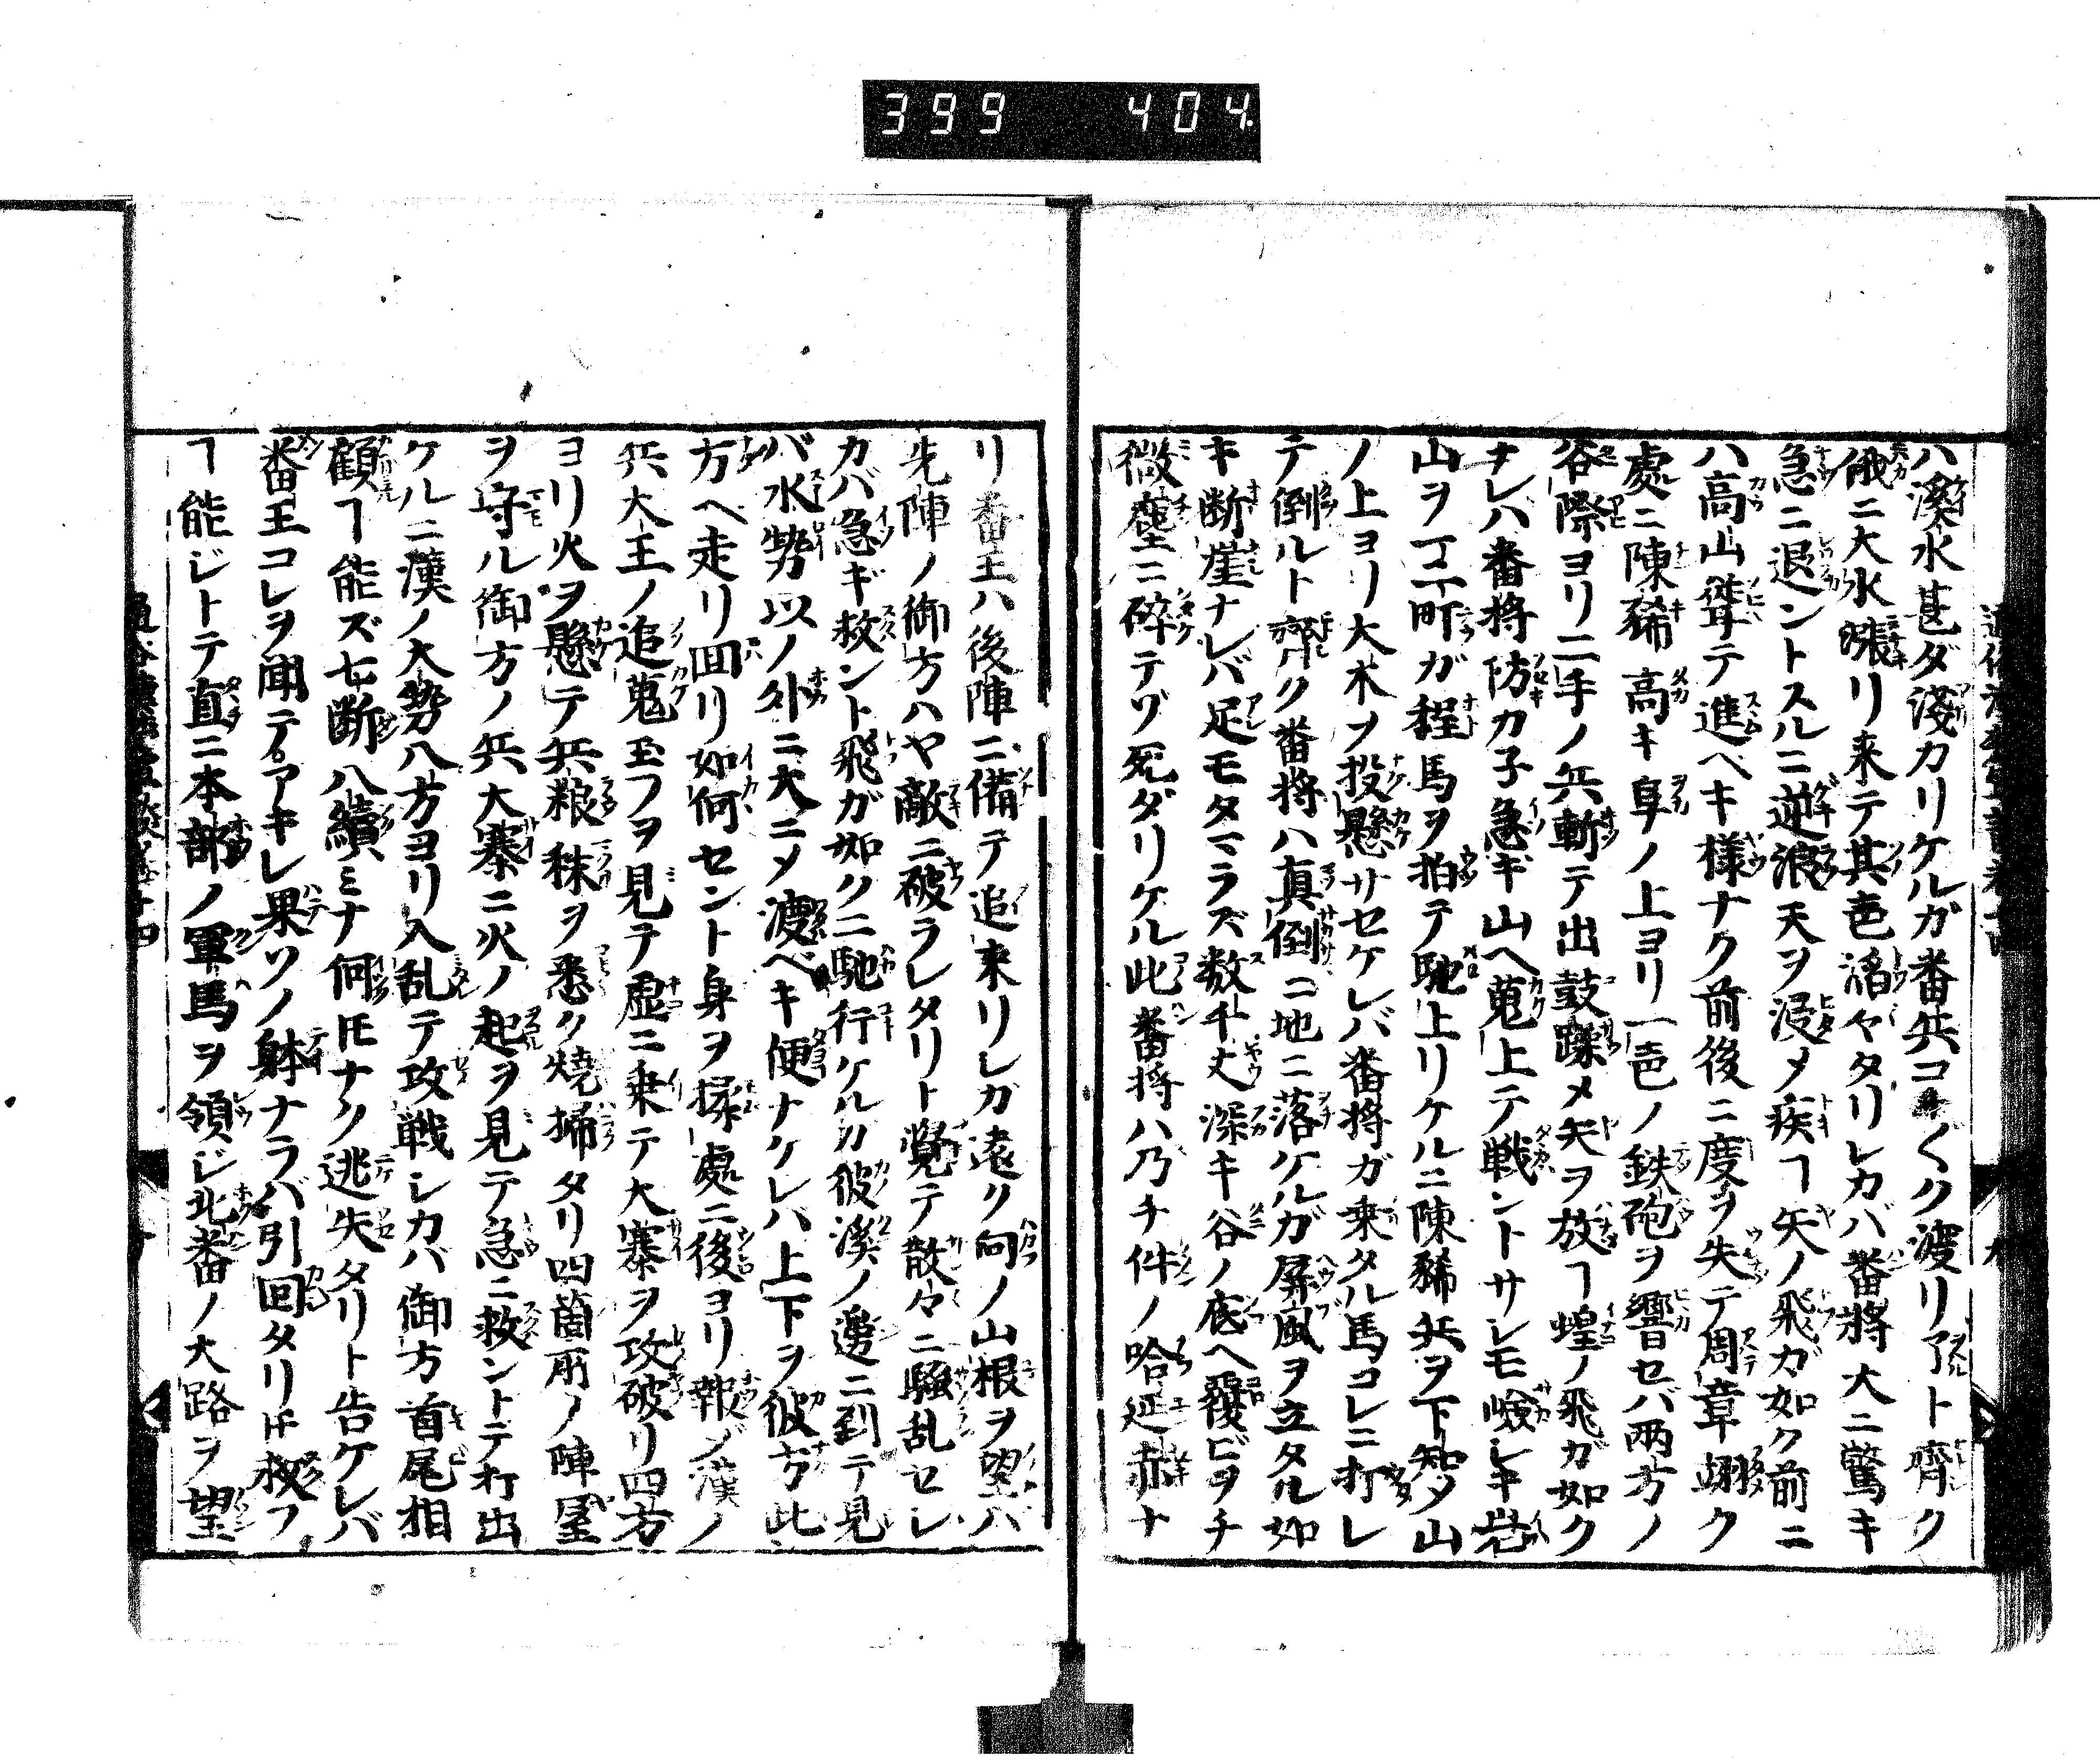 399 404.
ハ溪水甚ダ淺カリケルガ番兵コヿ〱ク渡リ了ト齊ク
俄ニ大水漲リ来テ其色滔々タリシカバ番將大ニ驚キ
急ニ退ントスルニ逆浪天ヲ浸メ疾ヿ矢ノ飛ガ如ク前ニ
ハ高山聳テ進ベキ様ナク前後ニ度ヲ失テ周章翃ク
處ニ陳豨高キ阜ノ上ヨリ一色ノ鉄砲ヲ響セバ両方ノ
谷際ヨリ二手ノ兵斬テ出鼓躁メ矢ヲ放ヿ蝗ノ飛ガ如ク
ナレハ番将防カ子急ギ山ヘ蒐上テ戦ントサレモ嶮レキ岩
山ヲ一二町ガ程馬ヲ拍テ馳上リケルニ陳豨兵ヲ下知メ山
ノ上ヨリ大木ヲ投懸サセケレバ番将ガ乗タル馬コレニ打レ
テ倒ルト齊ク番將ハ真倒ニ地ニ落ケルガ屏風ヲ立タル如
キ断崖ナレバ足モタマラズ数千丈深キ谷ノ底ヘ轉ビヲチ
微塵ニ碎テゾ死ダリケル此番将ハ乃チ件ノ哈延赤ナ
リ番王ハ後陣ニ備テ追来リシガ遠ク向ノ山根ヲ望バ
先陣ノ御方ハヤ敵ニ破ラレタリト覚テ散々ニ騒乱セシ
カバ急ギ救ント飛ガ如クニ馳行ケルカ彼溪ノ邊ニ到テ見
バ水勢以ノ外ニ大ニメ渡ベキ便ナケレハ上下ヲ彼方此
方ヘ走リ回リ如何セント身ヲ揉處ニ後ヨリ報ジ漢ノ
兵大王ノ追蒐玉フヲ見テ虚ニ乗テ大寨ヲ攻破リ四方
ヨリ火ヲ懸テ兵粮秣ヲ悉ク焼掃タリ四箇所ノ陣屋
ヲ守ル御方ノ兵大寨ニ火ノ起ヲ見テ急ニ救ントテ打出
ケルニ漢ノ大勢八方ヨリ入乱テ攻戦シカバ御方首尾相
顧ヿ能ズ七断八續ミナ何𪜈ナク逃失タリト告ケレバ
番王コレヲ聞テアキレ果ソノ躰ナラバ引回タリ𪜈救フ
ヿ能ジトテ直ニ本部ノ軍馬ヲ領ジ北番ノ大路ヲ望